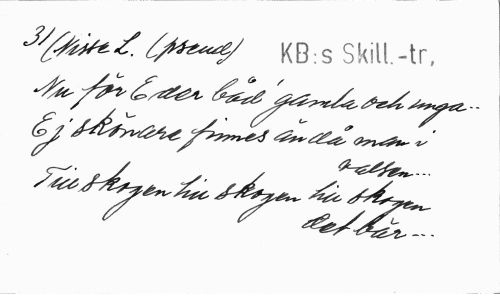 3) (Nisse L. (pseud) KB:s Skill.-tr,
Nu för Eder båd' gamla och unga..
Ej skönare finnes än då man i
valsen...
Till skogen till skogen till skogen
det bär...